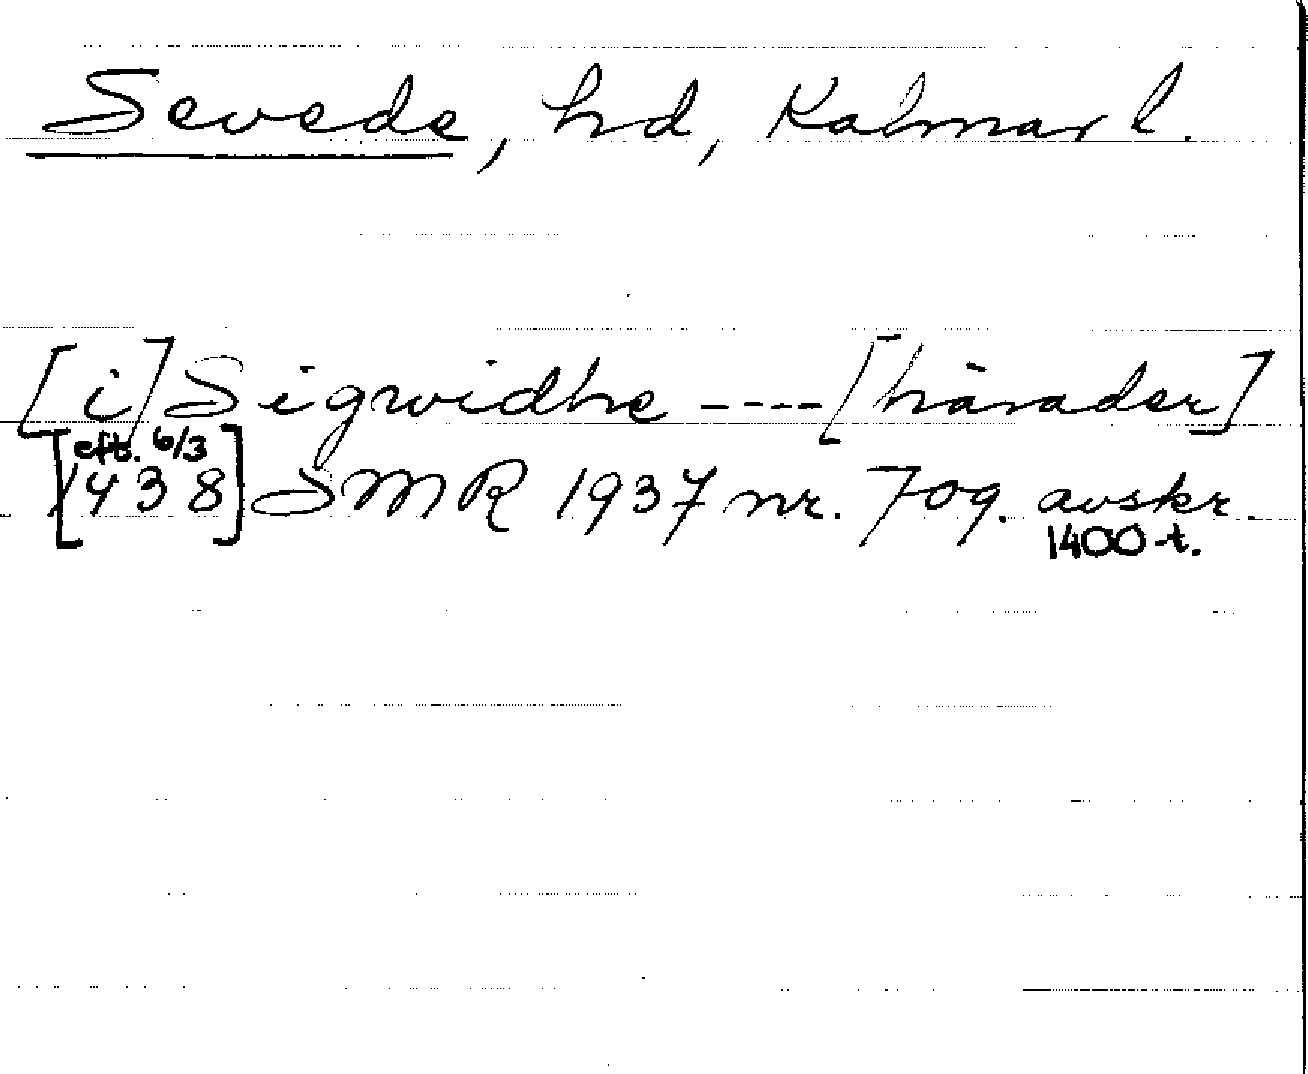 Sevede, hd, Kalmar l.
[i] Sigwidhe ---- [härader]
[eft. 6/3
1438] SMR 1937 nr. 709. avskr.
1400-t.